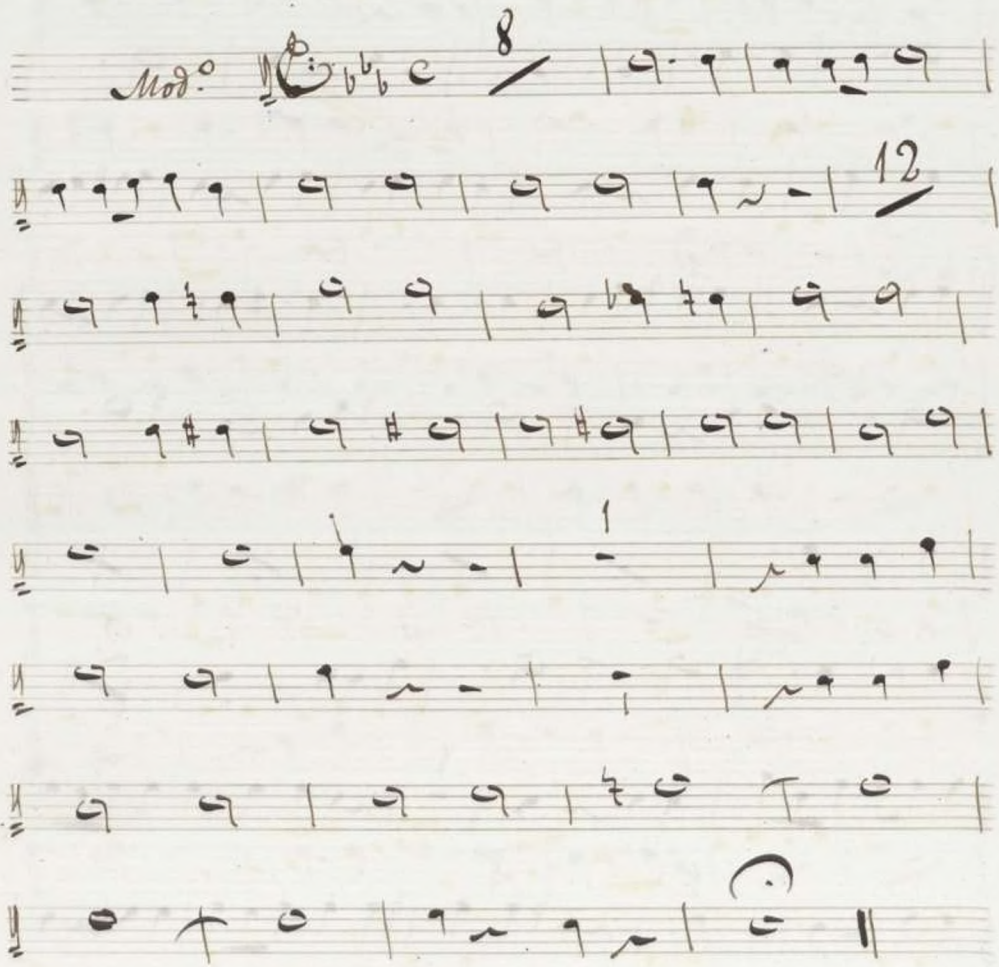 Mod.o 8
12
1
1